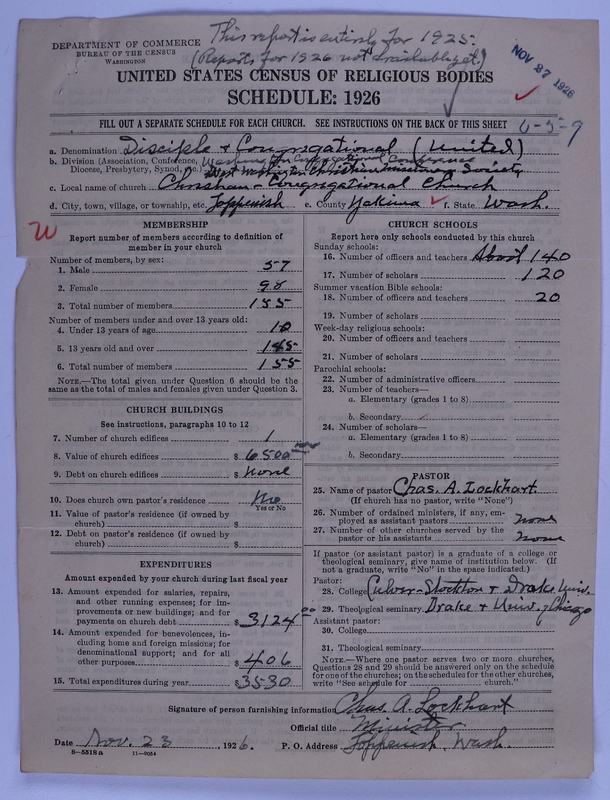 This report is entirely for 1925.
(Reports for 1926 not available yet.)
DEPARTMENT OF COMMERCE
BUREAU OF THE CENSUS
WASHINGTON
NOV 27 1926
UNITED STATES CENSUS OF RELIGIOUS BODIES
SCHEDULE: 1926
FILL OUT A SEPARATE SCHEDULE FOR EACH CHURCH. SEE INSTRUCTIONS ON THE BACK OF THIS SHEET
6-5-9
a. Denomination Disciple & Congregational (United)
b. Division (Association, Conference, Washington Congregational Conference
Diocese, Presbytery, Synod, West Washington Christian Missionary Society
c. Local name of church Christian-Congregational Church
d. City, town, village, or township, etc. Toppenish e. County Yakima f. State Wash.
W
MEMBERSHIP
Report number of members according to definition of
member in your church
Number of members, by sex:
1. Male 57
2. Female 98
3. Total number of members 155
Number of members under and over 13 years old:
4. Under 13 years of age 10
5. 13 years old and over 145
6. Total number of members 155
NOTE.—The total given under Question 6 should be the
same as the total of males and females given under Question 3.
CHURCH BUILDINGS
See instructions, paragraphs 10 to 12
7. Number of church edifices 1
8. Value of church edifices $ 6500
9. Debt on church edifices $ None
10. Does church own pastor's residence No
Yes or No
11. Value of pastor's residence (if owned by
church) $
12. Debt on pastor's residence (if owned by
church) $
EXPENDITURES
Amount expended by your church during last fiscal year
13. Amount expended for salaries, repairs,
and other running expenses; for im-
provements or new buildings; and for
payments on church debt $ 3124 00
14. Amount expended for benevolences, in-
cluding home and foreign missions; for
denominational support; and for all
other purposes $ 406
15. Total expenditures during year $ 3530
CHURCH SCHOOLS
Report here only schools conducted by this church
Sunday schools:
16. Number of officers and teachers About 140
17. Number of scholars 120
Summer vacation Bible schools:
18. Number of officers and teachers 20
19. Number of scholars
Week-day religious schools:
20. Number of officers and teachers
21. Number of scholars
Parochial schools:
22. Number of administrative officers
23. Number of teachers—
a. Elementary (grades 1 to 8)
b. Secondary
24. Number of scholars—
a. Elementary (grades 1 to 8)
b. Secondary
PASTOR
25. Name of pastor Chas. A. Lockhart
(If church has no pastor, write "None")
26. Number of ordained ministers, if any, em-
ployed as assistant pastors none
27. Number of other churches served by the
pastor or his assistants none
If pastor (or assistant pastor) is a graduate of a college or
theological seminary, give name of institution below. (If
not a graduate, write "No" in the space indicated.)
Pastor:
28. College Culver-Stockton & Drake Univ.
29. Theological seminary Drake & Univ. of Chicago
Assistant pastor:
30. College
31. Theological seminary
NOTE.—Where one pastor serves two or more churches,
Questions 28 and 29 should be answered only on the schedule
for one of the churches; on the schedules for the other churches,
write "See schedule for church."
Signature of person furnishing information Chas. A. Lockhart
Official title Minister
Date Nov. 23, 1926. P. O. Address Toppenish, Wash.
8-5518 a 11-9054